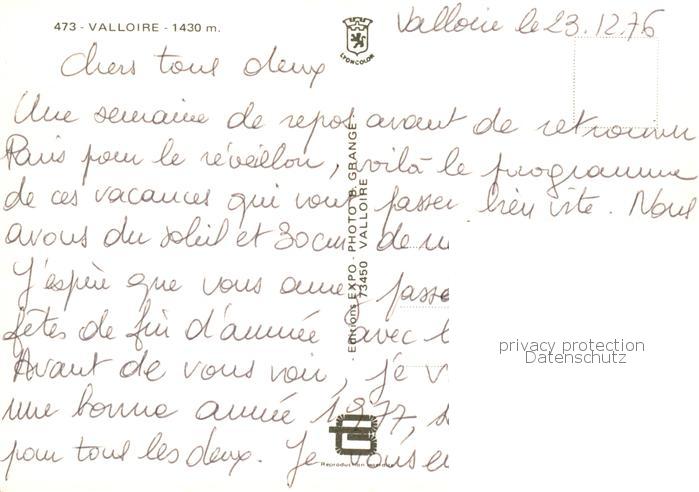 473 - VALLOIRE - 1430 m.
LYONCOLOR
Valloire le 23.12.76
Chers tous deux
Une semaine de repos avant de retrouver
Paris pour le réveillon, voilà le programme
de ces vacances qui vont passer bien vite. Nous
avons du soleil et 30cm de
J'espère que vous passe
fêtes de fin d'année avec
Avant de vous voir, je v
une bonne année 1977,
pour tous les deux. Je vous
Editions EXPO - PHOTO B. GRANGE -
73450 VALLOIRE
Reproduction interdite
privacy protection
Datenschutz